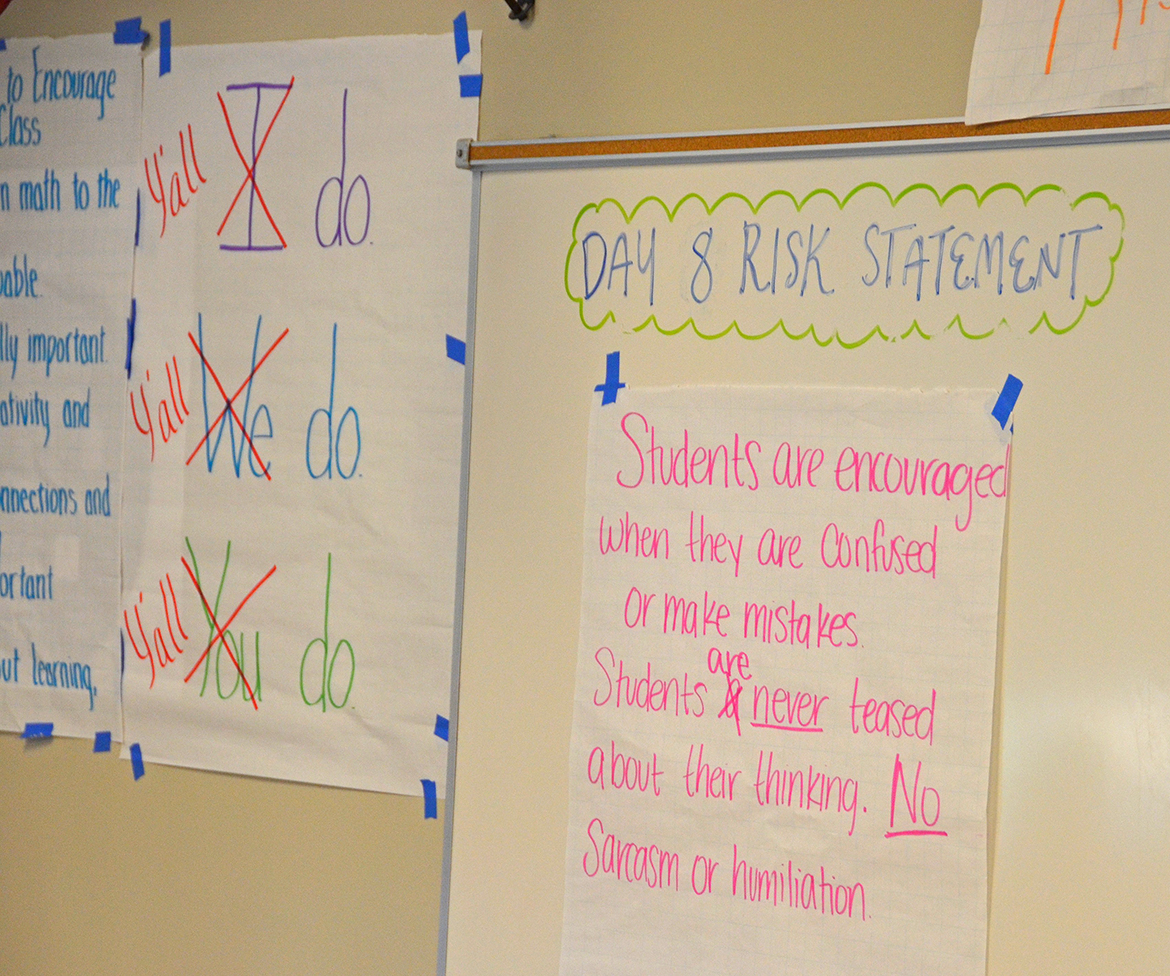 to Encourage
Class
n math to the
able.
lly important
ativity and
nnections and
ortant
ut learning,
Y'all I do.
Y'all We do.
Y'all You do.
DAY 8 RISK STATEMENT
Students are encouraged
when they are confused
or make mistakes.
are
Students never teased
about their thinking. No
Sarcasm or humiliation.